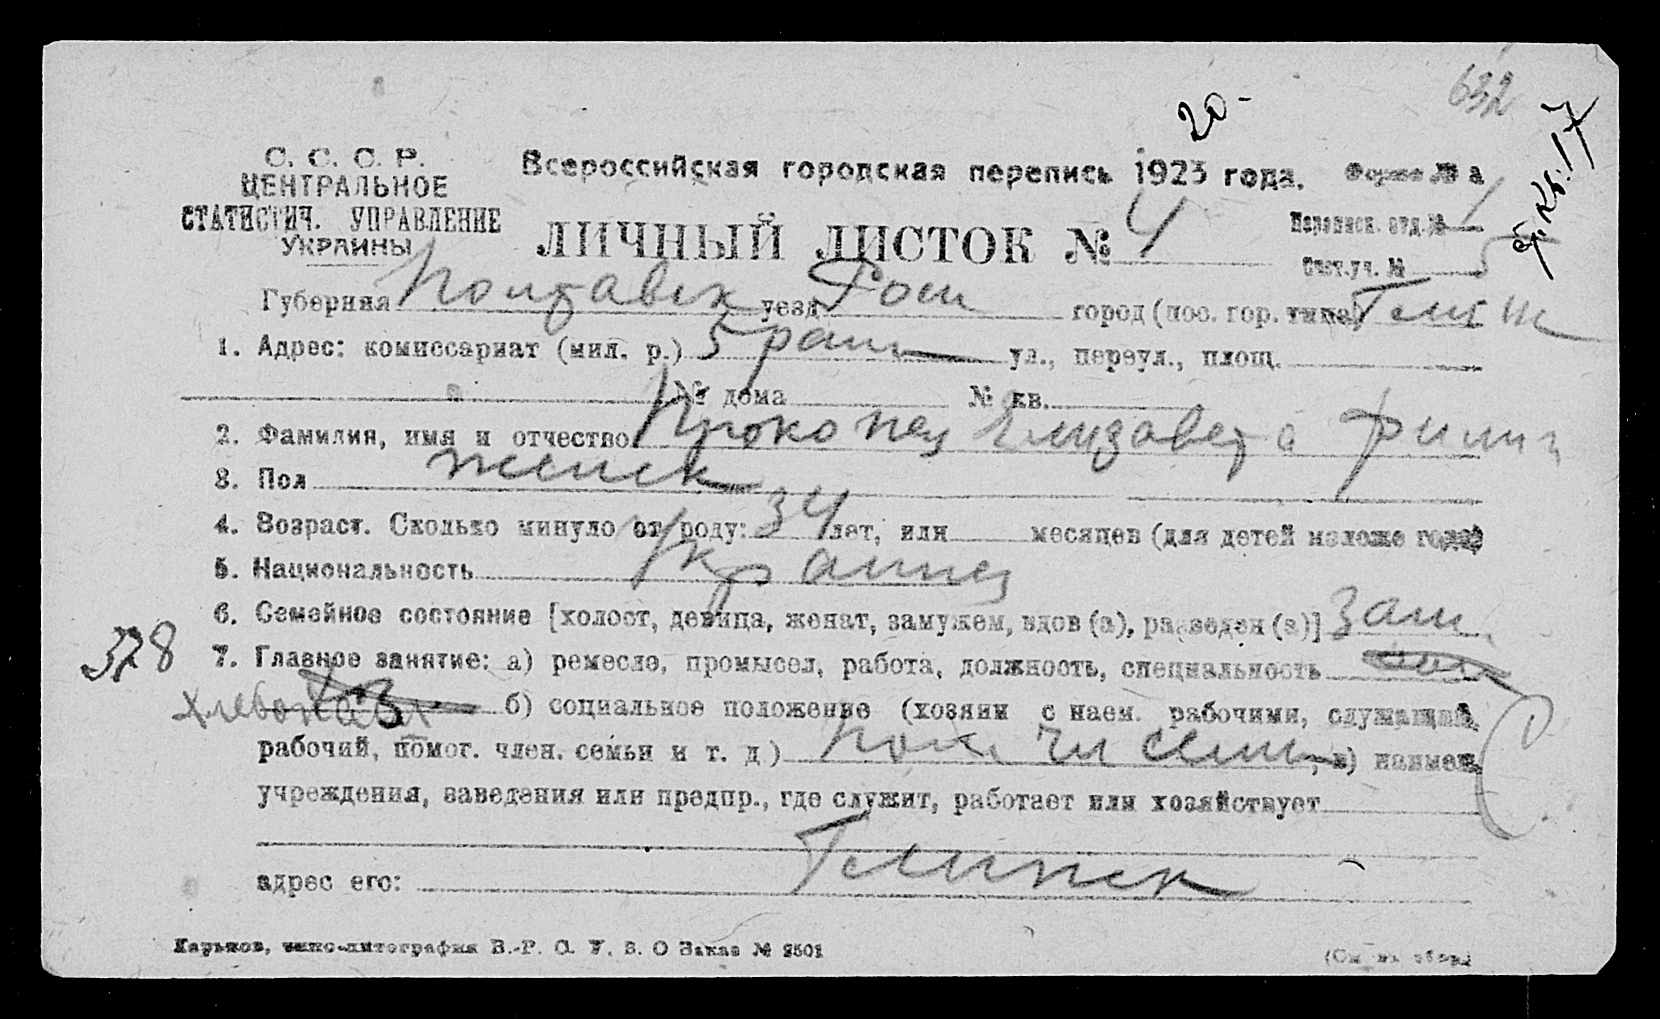 632
20-
С. С. С. Р.
ЦЕНТРАЛЬНОЕ
СТАТИСТИЧ. УПРАВЛЕНИЕ
УКРАИНЫ
Всероссийская городская перепись 1923 года. Форма № а
ЛИЧНЫЙ ЛИСТОК № 4
Переписн. отд. № 1
Счет. уч. № 5
Губерния Полтавск уезд Ром город (пос. гор. типа)
1. Адрес: комиссариат (мил. р.) 5 рай ул., переул., площ.
№ дома № кв.
2. Фамилия, имя и отчество Прокопец Елизавета Филип
3. Пол женск
4. Возраст. Сколько минуло от роду: 34 лет, или месяцев (для детей моложе года)
5. Национальность Украинец
6. Семейное состояние [холост, девица, женат, замужем, вдов (а), разведен (а)] Зам.
328
7. Главное занятие: а) ремесло, промысел, работа, должность, специальность
хлебопаш б) социальное положение (хозяин с наем. рабочими, служащий,
рабочий, помог. член. семьи и т. д) пом чл семьи, в) наимен.
учреждения, заведения или предпр., где служит, работает или хозяйствует
адрес его: Глинск
Харьков, типо-литография В.-Р. О. У. В. О Заказ № 2501
(См на обор.)